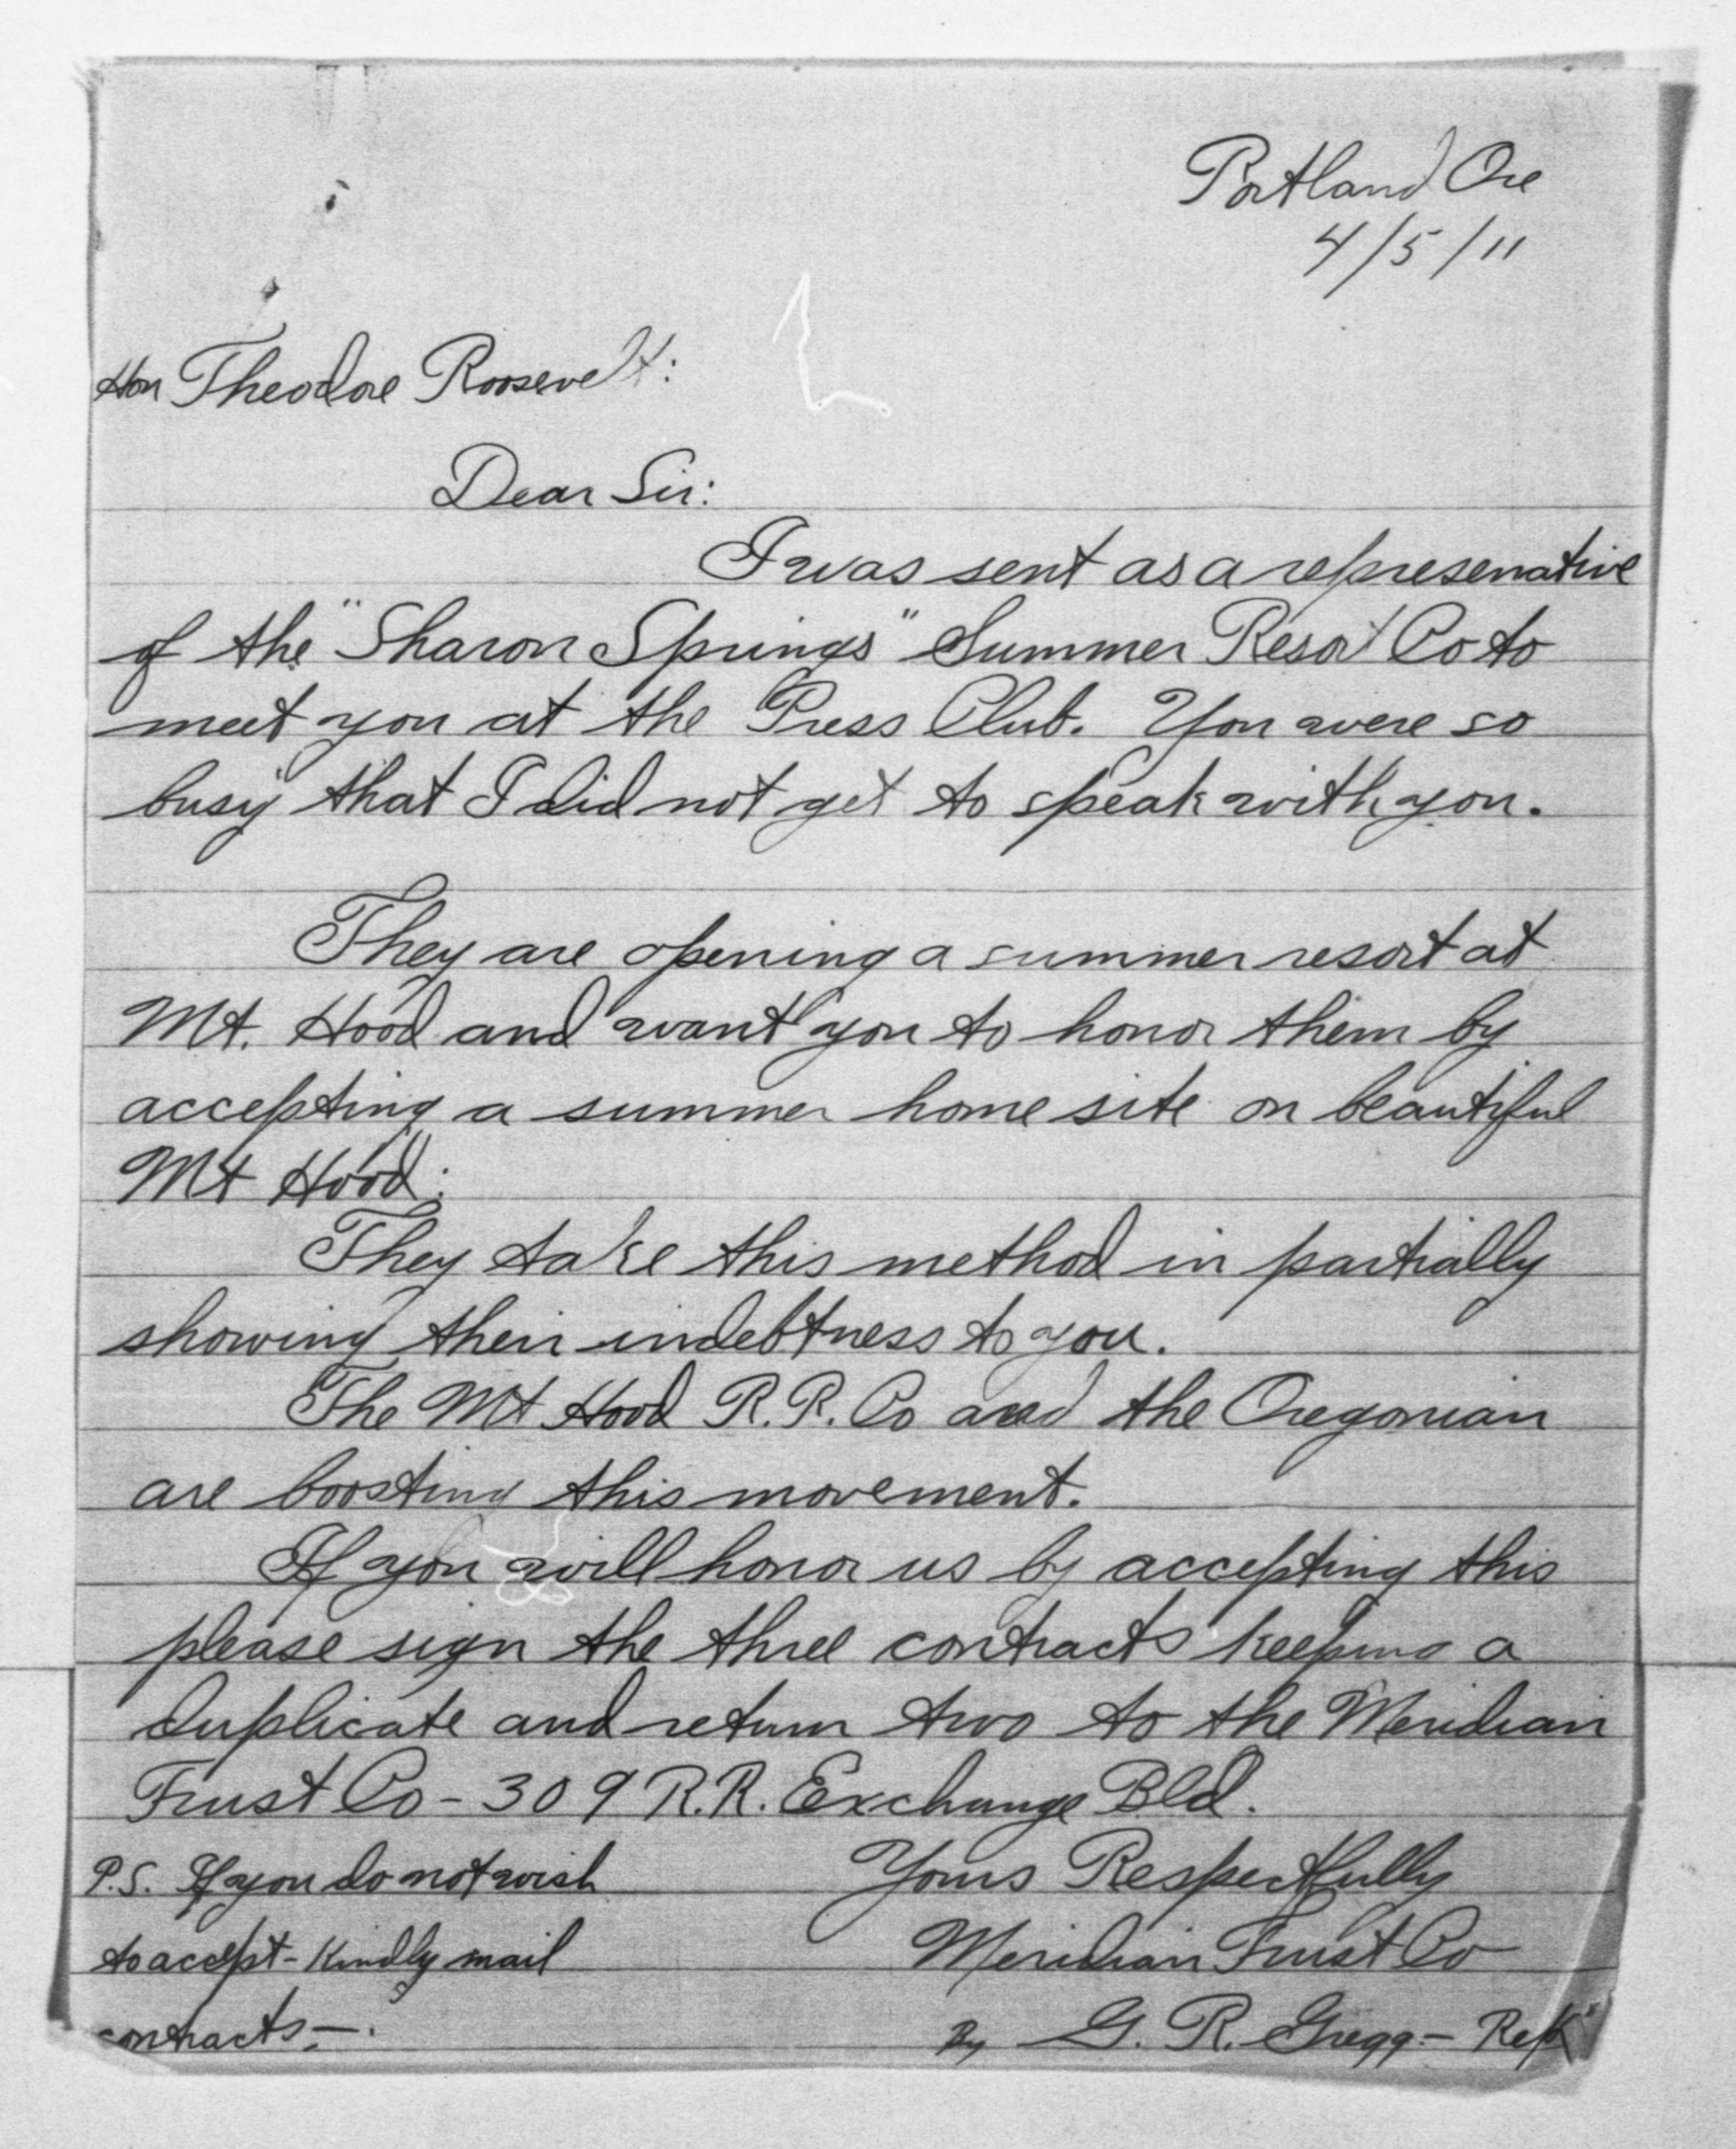 Portland Ore
4/5/11
Hon Theodore Roosevelt:
Dear Sir:
I was sent as a represenative
of the "Sharon Springs" Summer Resort Co to
meet you at the Press Club. You were so
busy that I did not get to speak with you.
They are opening a summer resort at
Mt. Hood and want you to honor them by
accepting a summer home site on beautiful
Mt Hood:
They take this method in partially
showing their indebtness to you.
The Mt Hood R.R. Co and the Oregonian
are boosting this movement.
If you will honor us by accepting this
please sign the three contracts keeping a
duplicate and return two to the Meridian
Trust Co - 309 R.R. Exchange Bld.
P.S. If you do not wish
to accept - kindly mail
contracts -.
Yours Respectfully
Meridian Trust Co
By G. R. Gregg - Rep